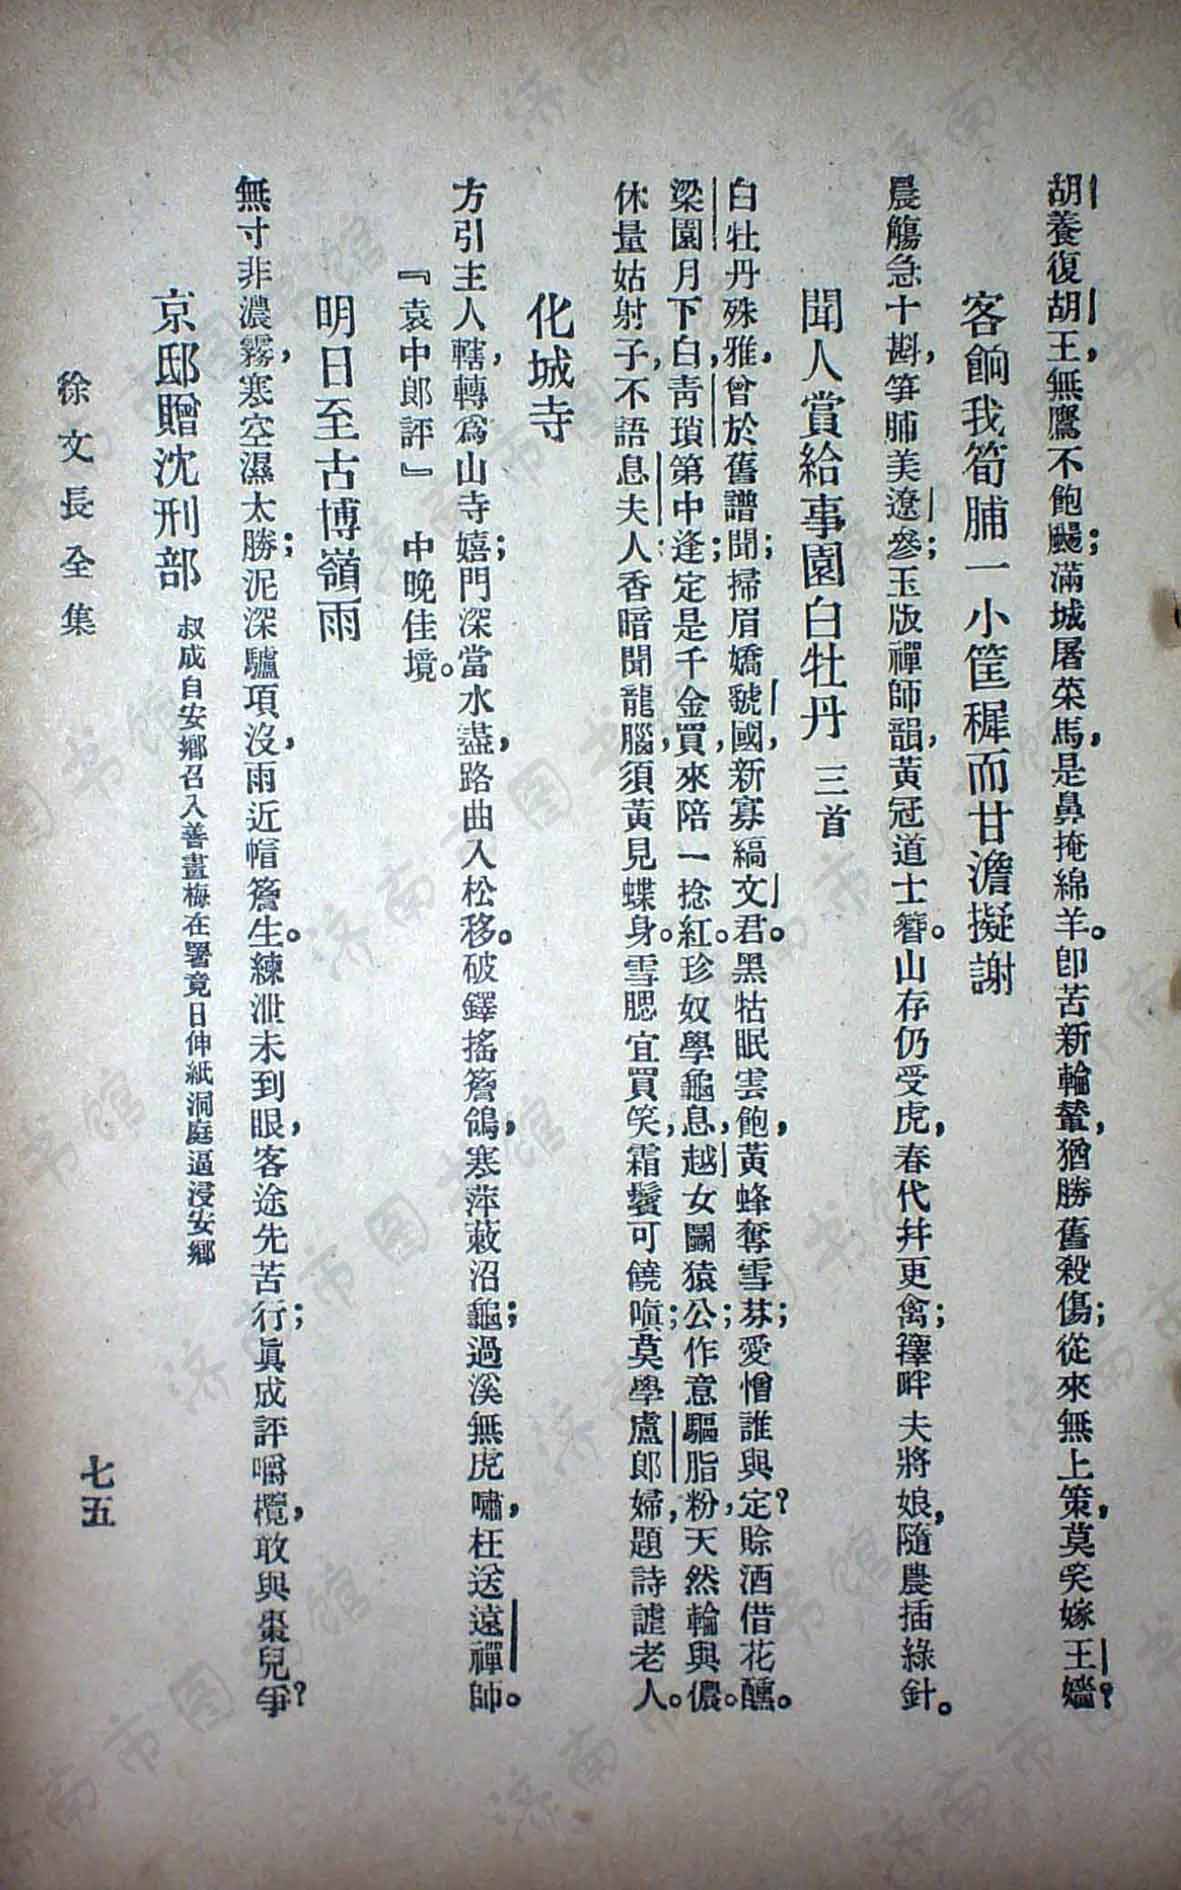 胡養復胡王，無鷹不飽颺；滿城屠菜馬，是鼻掩綿羊。卽苦新輪輦，猶勝舊殺傷；從來無上策，莫笑嫁王嬙？
客餉我筍脯一小筐穉而甘澹擬謝
晨觴急十斟，筝脯美遼參；玉版禪師韻，黃冠道士簪。山存仍受虎，春代幷更禽；籜畔夫將娘，隨農插綠針。
聞人賞給事園白牡丹 三首
白牡丹殊雅，曾於舊譜聞；掃眉嬌虢國，新寡縞文君。黑牯眠雲飽，黃蜂奪雪芬；愛憎誰與定？賒酒借花醺。
梁園月下白，靑瑣第中逢；定是千金買，來陪一捻紅。珍奴學龜息，越女鬭猿公；作意驅脂粉，天然輸與儂。
休量姑射子，不語息夫人；香暗聞龍腦，須黃見蝶身。雪腮宜買笑，霜鬢可饒嗔；莫學盧郎婦，題詩謔老人。
化城寺
方引主人轄，轉爲山寺嬉；門深當水盡，路曲入松移。破鐸搖簷鴿，寒萍蔌沼龜；過溪無虎嘯，枉送遠禪師。
『袁中郎評』 中晚佳境。
明日至古博嶺雨
無寸非濃霧，寒空濕太勝；泥深驢項沒，雨近帽簷生。練泄未到眼，客途先苦行；眞成評嚼欖，敢與棗兒爭？
京邸贈沈刑部 叔成自安鄉召入善畫梅在署竟日伸紙洞庭逼浸安鄉
徐文長全集
七五